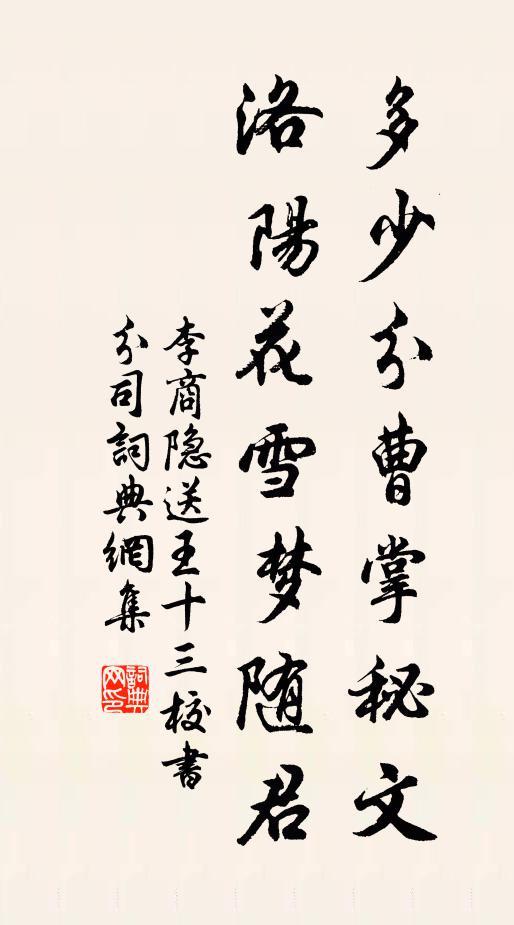 多少分曹掌秘文
洛陽花雪梦随君
李商隐送王十三校書
分司詞典網集
詞典网印